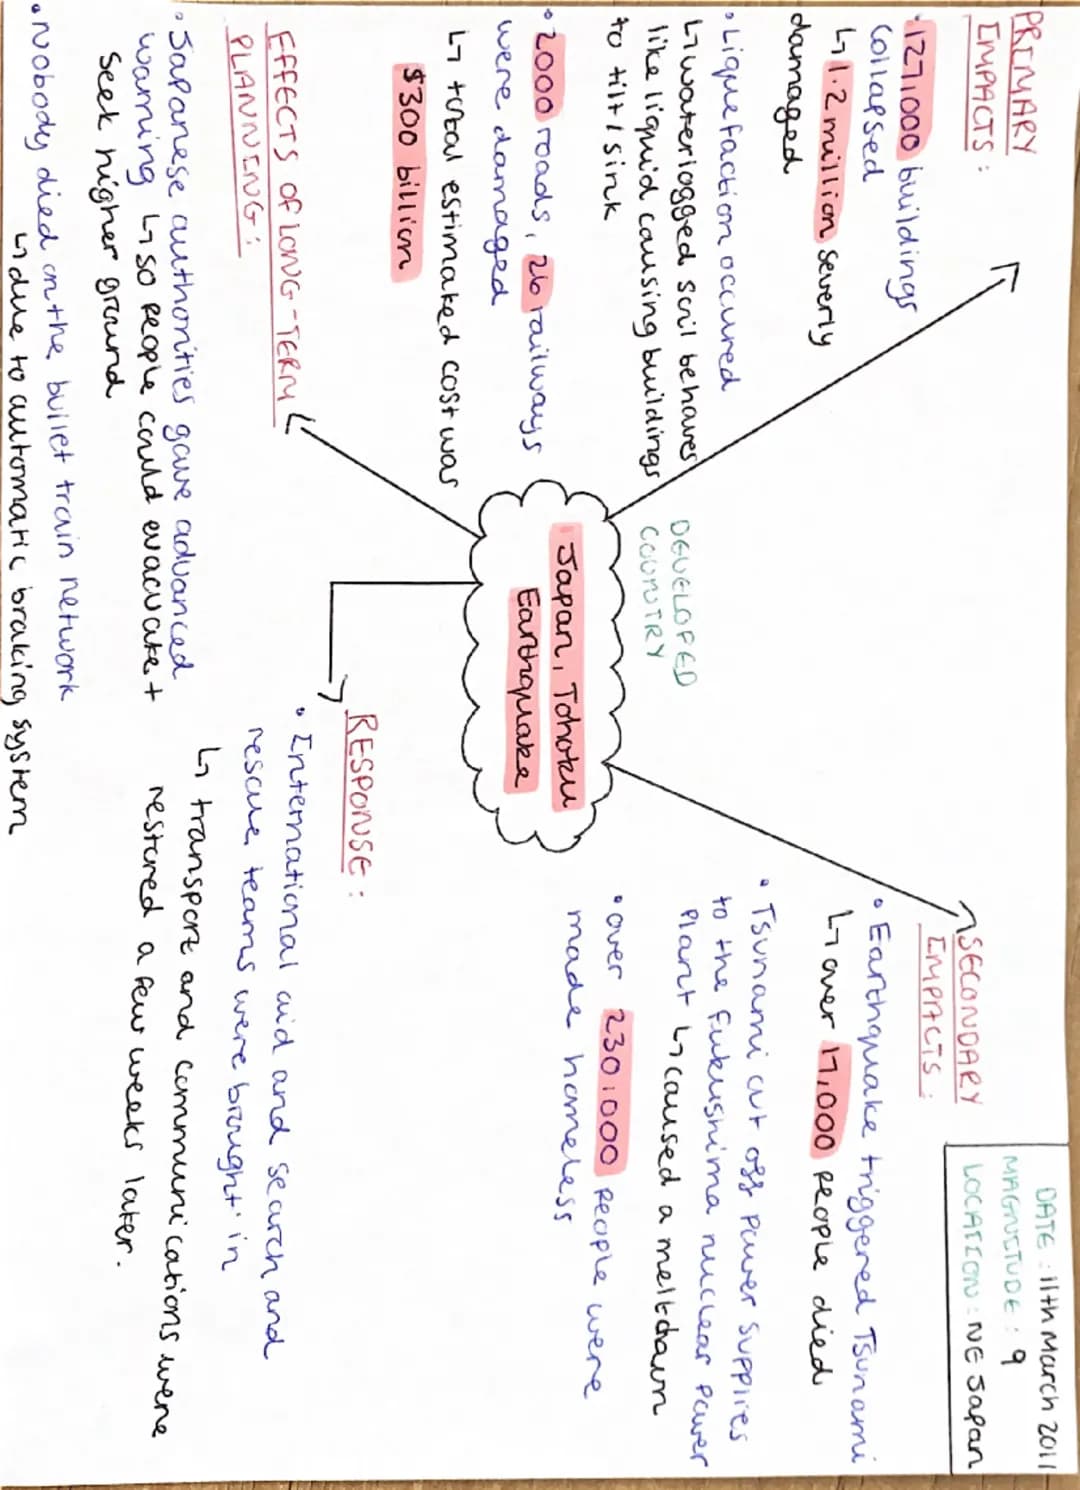 PRIMARY
IMPACTS :
• 127,000 buildings
collapsed
↳ 1.2 million severly
damaged
• Liquefaction occured
↳ waterlogged soil behaves
like liquid causing buildings
to tilt/sink
• 2000 roads, 26 railways
were damaged
↳ total estimated cost was
$300 billion
EFFECTS OF LONG-TERM
PLANNING :
• Japanese authorities gave advanced
warning ↳ so people could evacuate +
seek higher ground
• nobody died on the bullet train network
↳ due to automatic braking system
DEVELOPED
COUNTRY
Japan, Tohoku
Earthquake
RESPONSE :
• International aid and search and
rescue teams were brought in
↳ transport and communications were
restored a few weeks later.
SECONDARY
IMPACTS :
• Earthquake triggered Tsunami
↳ over 17,000 people died
• Tsunami cut off power supplies
to the Fukushima nuclear power
plant ↳ caused a meltdown
• over 230,000 people were
made homeless
DATE : 11th March 2011
MAGNITUDE : 9
LOCATION : NE Japan